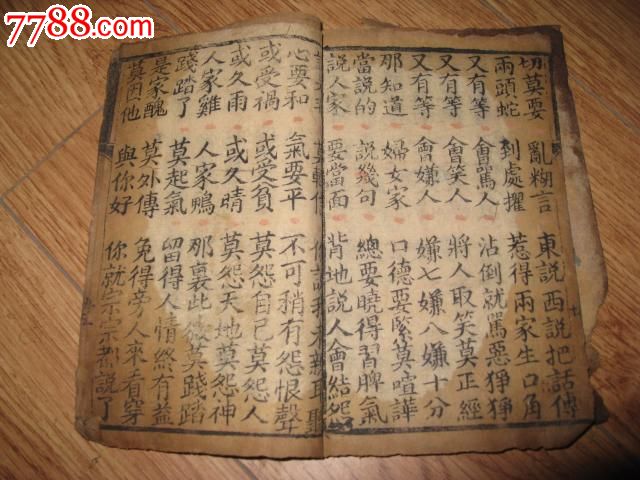 7788.com
切莫要 亂糊言 東説西説把話傳
兩頭蛇 到處擢 惹得兩家生口角
又有等 會罵人 沾倒就罵惡狰狰
又有等 會笑人 將人取笑莫正經
又有等 會嫌人 嫌七嫌八嫌十分
那知道 婦女家 口德要緊莫喧譁
當説的 説幾句 總要曉得習脾氣
説人家 要當面 背地説人會結怨
心要和 氣要平 不可稍有怨恨聲
或受禍 或受貧 莫怨自己莫怨人
或久雨 或久晴 莫怨天地莫怨神
人家雞 人家鴨 那裏此微莫踐踏
踐踏了 莫起氣 留得人情終有益
是家醜 莫外傳 免得旁人來看穿
莫因他 與你好 你就宗宗都説了